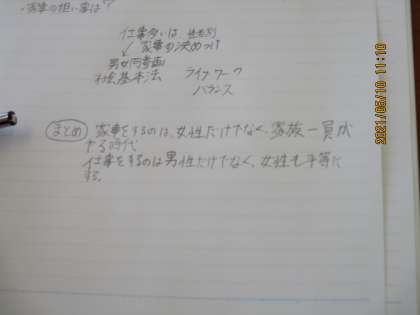 ・家事の担い手は?
仕事あるいは 性差別
↙ 家事の決めつけ
男女共同参画
社会基本法 ライフ ワーク
バランス
まとめ 家事をするのは、女性だけでなく、家族一員が
やる時代
仕事をするのは男性だけでなく、女性も平等に
する。
2021/06/10 11:10